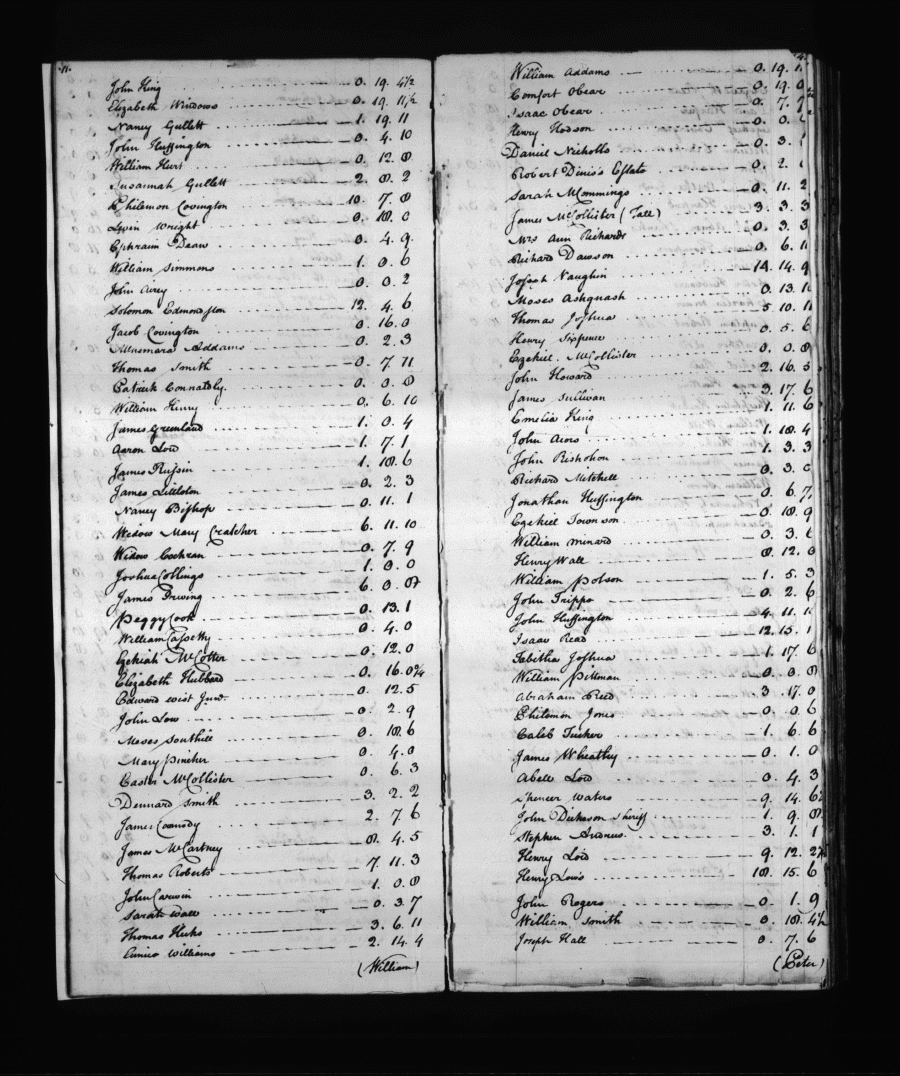 John King 0. 19. 4½
Elizabeth Windows 0. 19. 11½
Nancy Gullett 1. 19. 11
John Huffington 0. 4. 10
William Hurt 0. 12. 8
Susannah Gullett 2. 8. 2
Philemon Covington 10. 7. 8
Levin Wright 0. 18. 0
Ephraim Dean 0. 4. 9
William Simmons 1. 0. 6
John Avrey 0. 0. 2
Solomon Edmondson 12. 4. 6
Jacob Covington 0. 16. 0
Addams 0. 2. 3
Thomas Smith 0. 7. 11
Patrick Connately 0. 0. 8
William Henry 0. 6. 10
James Greenland 1. 0. 4
Aaron Lord 1. 7. 1
James Russin 1. 18. 6
James Littleton 0. 2. 3
Nancy Bishop 0. 11. 1
Widow Mary Cratcher 6. 11. 10
Widow Cochran 0. 7. 9
Joshua Collings 1. 0. 0
James Drewing 6. 0.
Peggy Cook 0. 13. 1
William Cassetty 0. 4. 0
Ezekiah McCotter 0. 12. 0
Elizabeth Hubbard 0. 16. 0¾
Edward Wist Junr. 0. 12. 5
John Low 0. 2. 9
Moses Southill 0. 18. 6
Mary Pinither 0. 4. 0
Caster McCollister 0. 6. 3
Dennard Smith 3. 2. 2
James Cannady 2. 7. 6
James McCartney 8. 4. 5
Thomas Roberts 7. 11. 3
John Carwin 1. 0. 8
Sarah Wall 0. 3. 7
Thomas Hicks 3. 6. 11
Eunice Williams 2. 14. 4
(William)
William Addams 0. 19.
Comfort Obear 0. 19. 0
Isaac Obear 0. 7. 7
Henry Hodson 0. 0.
Daniel Nicholls 0. 3.
Robert Dinis's Estate 0. 2.
Sarah Mommings 0. 11. 2
James McCollister (Tall) 3. 3. 3
Mrs Ann Richards 0. 3. 3
Richard Dawson 0. 6. 11
Josiah Vaughin 14. 14. 9
Moses Ashquash 0. 13. 10
Thomas Joshua 5. 10. 11
Henry Sixpence 0. 5. 6
Ezekiel McCollister 0. 0. 8
John Howard 2. 16. 5
James Sullivan 3. 17. 6
Emelia King 1. 11. 6
John Acors 1. 18. 4
John Rishohon 1. 3. 3
Richard Mitchell 0. 3. 0
Jonathan Huffington 0. 6. 7
Ezekiel Townson 0. 18. 9
William Minard 0. 3.
Henry Wall 8. 12. 0
William Polson 1. 5. 3
John Trippe 0. 2. 6
John Huffington 4. 11.
Isaac Read 12. 15. 1
Tabitha Joshua 1. 17. 6
William Pittman 0. 0. 8
Abraham Reed 3. 17. 0
Philemon Jones 0. 0. 6
Caleb Tucker 1. 6. 6
James Wheatley 0. 1. 0
Abell Lord 0. 4. 3
Spencer Waters 9. 14. 6½
John Dickeson Sheriff 1. 9. 8
Stephen Andrew 3. 1. 1
Henry Lord 9. 12. 2½
Henry Lows 18. 15. 6
John Rogers 0. 1. 9
William Smith 0. 18. 4½
Joseph Hall 0. 7. 6
(Peter)